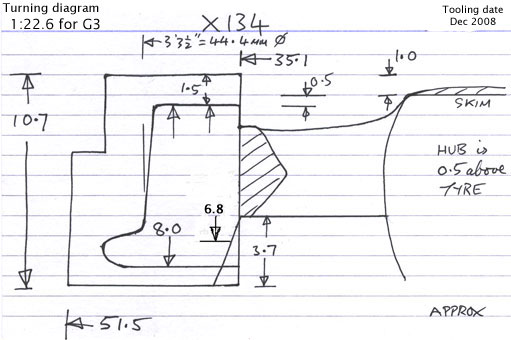 Turning diagram
1:22.6 for G3
X134
Tooling date
Dec 2008
3'3½" = 44.4mm Ø
35.1
1.0
0.5
1.5
SKIM
10.7
HUB is
0.5 above
TYRE
6.8
8.0
3.7
51.5
APPROX